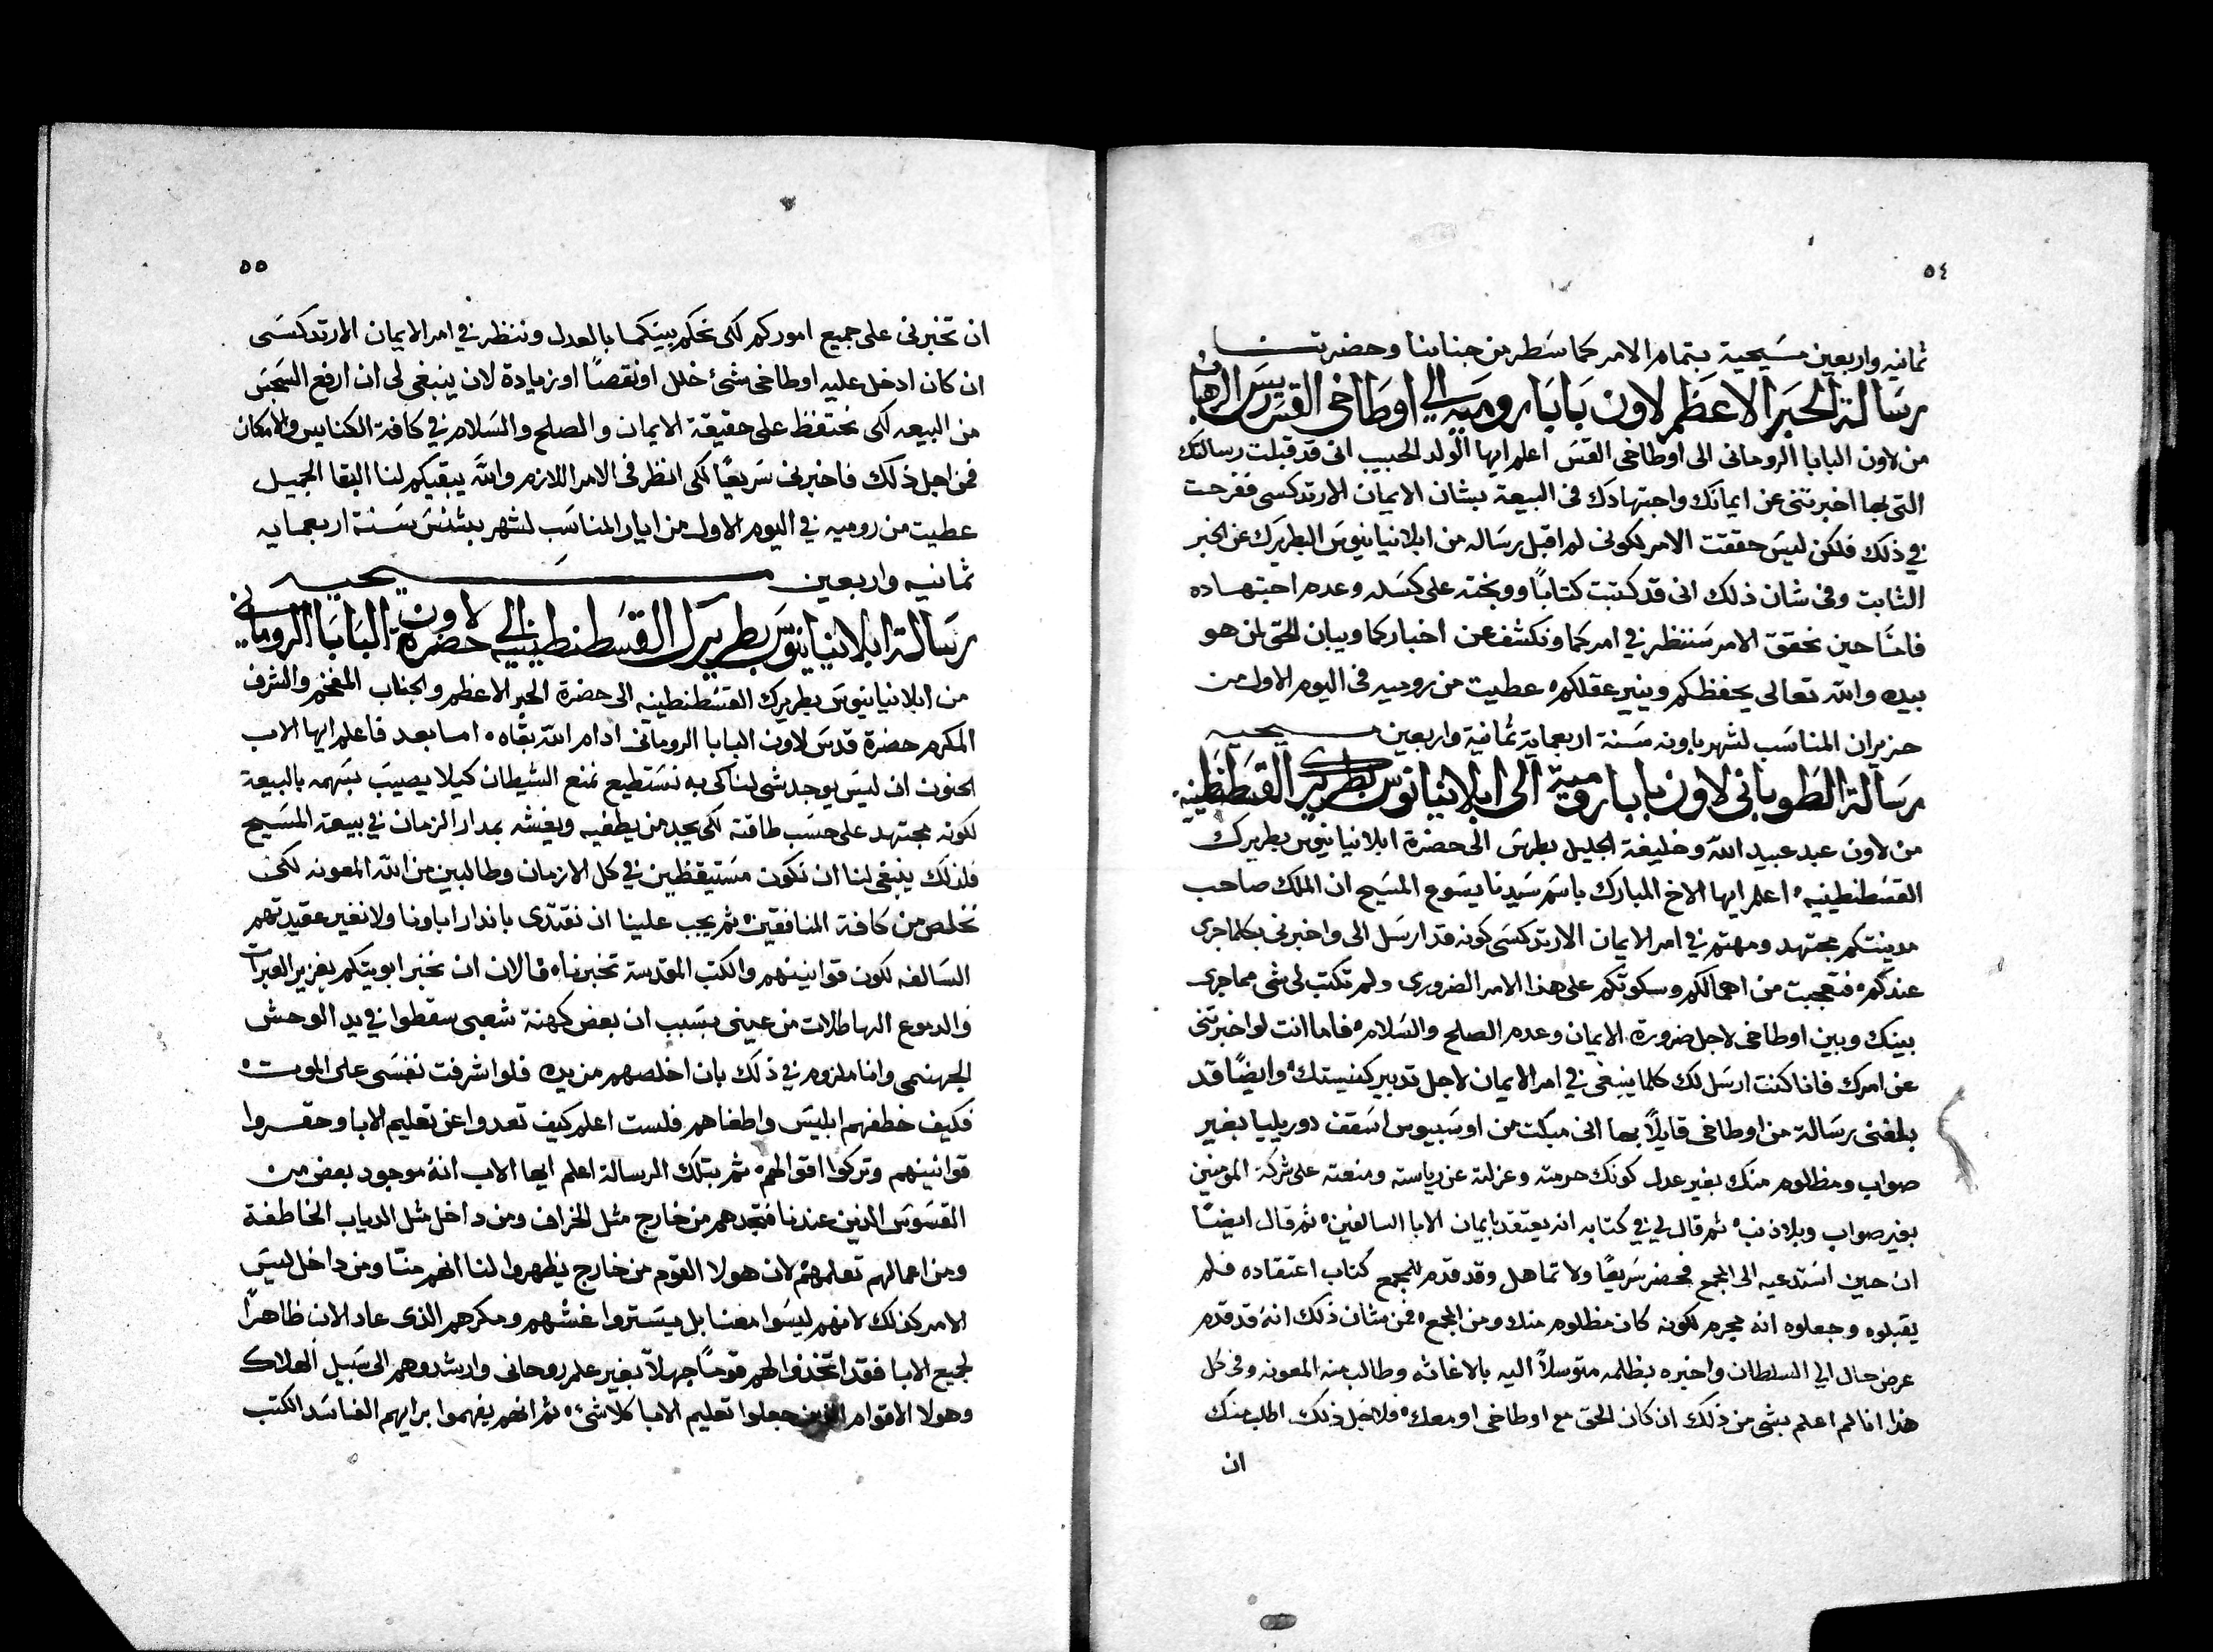 ٥٤
ثمانيه واربعين مسيحية بتمام الامر كما سطر من جنابنا وحضرتنا
رسالة الحبر الاعظم لاون بابا روميه الى اوطاخى القسيس الرهبان
من لاون البابا الرومانى الى اوطاخى القس اعلم ايها الولد الحبيب انى قد قبلت رسالتك
التى بها اخبرتنى عن ايمانك واجتهادك فى البيعة بشان الايمان الارتدكسى ففرحت
في ذلك فلكن ليس حققت الامر لكونى لم اقبل رساله من ابلانيانيوس البطريرك عن الخبر
الثابت وفى شان ذلك انى قد كتبت كتابًا ووبخته على كسله وعدم اجتهاده
فاننا حين نحقق الامر سننظر في امركما ونكشف عن اخباركما ويبان الحق لمن هو
بيده والله تعالى يحفظكم وينير عقلكم ه عطيت من روميه فى اليوم الاول من
حزيران المناسب لشهر باونه سنة اربعماية ثمانية واربعين مسيحيه
رسالة الطوبانى لاون بابا رومية الى ابلانيانوس بطريرك القسطنطينيه
من لاون عبد عبيد الله وخليفة الجليل بطرس الى حضرة ابلانيانيوس بطريرك
القسطنطينيه ه اعلم ايها الاخ المبارك باسم سيدنا يسوع المسيح ان الملك صاحب
مدينتكم مجتهد ومهتم في امر الايمان الارتدكسى كونه قد ارسل الى واخبرنى بكلما جرى
عندكم ه فتعجبت من اهمالكم وسكوتكم على هذا الامر الضرورى ولم تكتب لى شى مما جرى
بينك وبين اوطاخى لاجل ضرورة الايمان وعدم الصلح والسلام ه فاما انت لو اخبرتنى
عن امرك فانا كنت ارسل لك كلما ينبغى في امر الايمان لاجل تدبير كنيستك ه وايضًا قد
بلغنى رسالة من اوطاخى قايلاً بها انى مبكت من اوسبيوس اسقف دوريليا بغير
صواب ومظلوم منك بغير عدل كونك حرمته وعزلته عن رياسته ومنعته على شركة المومنين
بغير صواب وبلا ذنب ه ثم قال لي في كتابه انه يعتقد بايمان الابا السالفين ه ثم قال ايضًا
ان حين استدعيه الى المجمع فحضر سريعًا ولا تماهل وقد قدم للمجمع كتاب اعتقاده فلم
يقبلوه وجعلوه انه مجرم لكونه كان مظلوم منك ومن المجمع ه فمن مشان ذلك انه قد قدم
عرض حال الي السلطان واخبره بظلمه متوسلاً اليه بالاغاثه وطالب منه المعونه وفى كل
هذا انا لم اعلم بشى من ذلك ان كان الحق مع اوطاخى او معك ه فلاجل ذلك اطلب منك
ان
٥٥
ان تخبرنى على جميع اموركم لكى نحكم بينكما بالعدل وننظر في امر الايمان الارتدكسى
ان كان ادخل عليه اوطاخى شئ خلل او نقصًا او زيادة لان ينبغى لى ان ارفع السجس
من البيعه لكى نحتفظ على حقيقة الايمان والصلح والسلام في كافة الكنايس والامكان
فمن اجل ذلك فاخبرنى سريعًا لكى انظر فى الامر اللازم والله يبقيكم لنا البقا الجميل
عطيت من روميه في اليوم الاول من ايار المناسب لشهر بشنس سنة اربعمايه
ثمانيه واربعين مسيحيه
رسالة ابلانيانيوس بطريرك القسطنطينيه الى حضرة لاون البابا الرومانى
من ابلانيانيوس بطريرك القسطنطينيه الى حضرة الحبر الاعظم والجناب المفخم والشرف
المكرم حضرة قدس لاون البابا الرومانى ادام الله بقاه ه اما بعد فاعلم ايها الاب
الحنون ان ليس يوجد شى لنا كى به نستطيع نمنع الشيطان كيلا يصيب بسهمه بالبيعة
لكونه مجتهد على حسب طاقته لكى يجد من يطغيه ويغشه بمدار الزمان في بيعة المسيح
فلذلك ينبغى لنا ان نكون مستيقظين في كل الازمان وطالبين من الله المعونه لكى
نخلص من كافة المنافقين ه ثم يجب علينا ان نقتدى باندار اباونا ولا نغير عقيدتهم
السالفه لكون قوانينهم والكتب المقدسة تخبرنا ه فالان ان نخبر ابويتكم بغزير العبرات
والدموع الهاطلات من عينى بسبب ان بعض كهنة شعبى سقطوا في يد الوحش
الجهنمى وانا ملزوم في ذلك بان اخلصهم من يده فلو اشرفت نفسى على الموت ه
فكيف خطفهم ابليس واطغاهم فلست اعلم كيف تعدوا عن تعليم الابا وحقروا
قوانينهم وتركوا اقوالهم ه ثم بتلك الرسالة اعلم ايها الاب انه موجود بعض من
القسوس الذين عندنا فنجدهم من خارج مثل الخراف ومن داخل مثل الدياب الخاطفة
ومن اعمالهم تعلموهم لان هولا القوم من خارج يظهروا لنا انهم منّا ومن داخل ليس
الامر كذلك لانهم ليسوا معنا بل يستروا غشهم ومكرهم الذى عاد الان ظاهرًا
لجميع الابا فقد اتخذوا لهم قومًا جهلاً بغير علم روحانى وارشدوهم الى سبيل الهلاك
وهولا الاقوام الذين جعلوا تعليم الابا كلاشئ ه ثم انهم يفهموا برايهم الفاسد الكتب